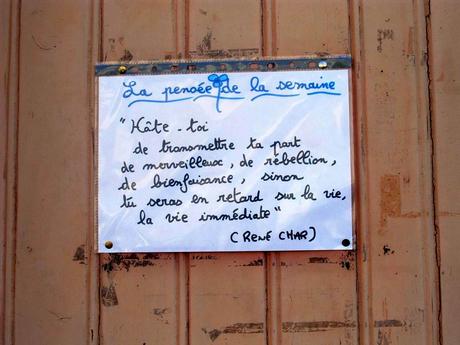 La pensée de la semaine
"Hâte-toi
de transmettre ta part
de merveilleux, de rébellion,
de bienfaisance, sinon
tu seras en retard sur la vie,
la vie immédiate"
(RENÉ CHAR)